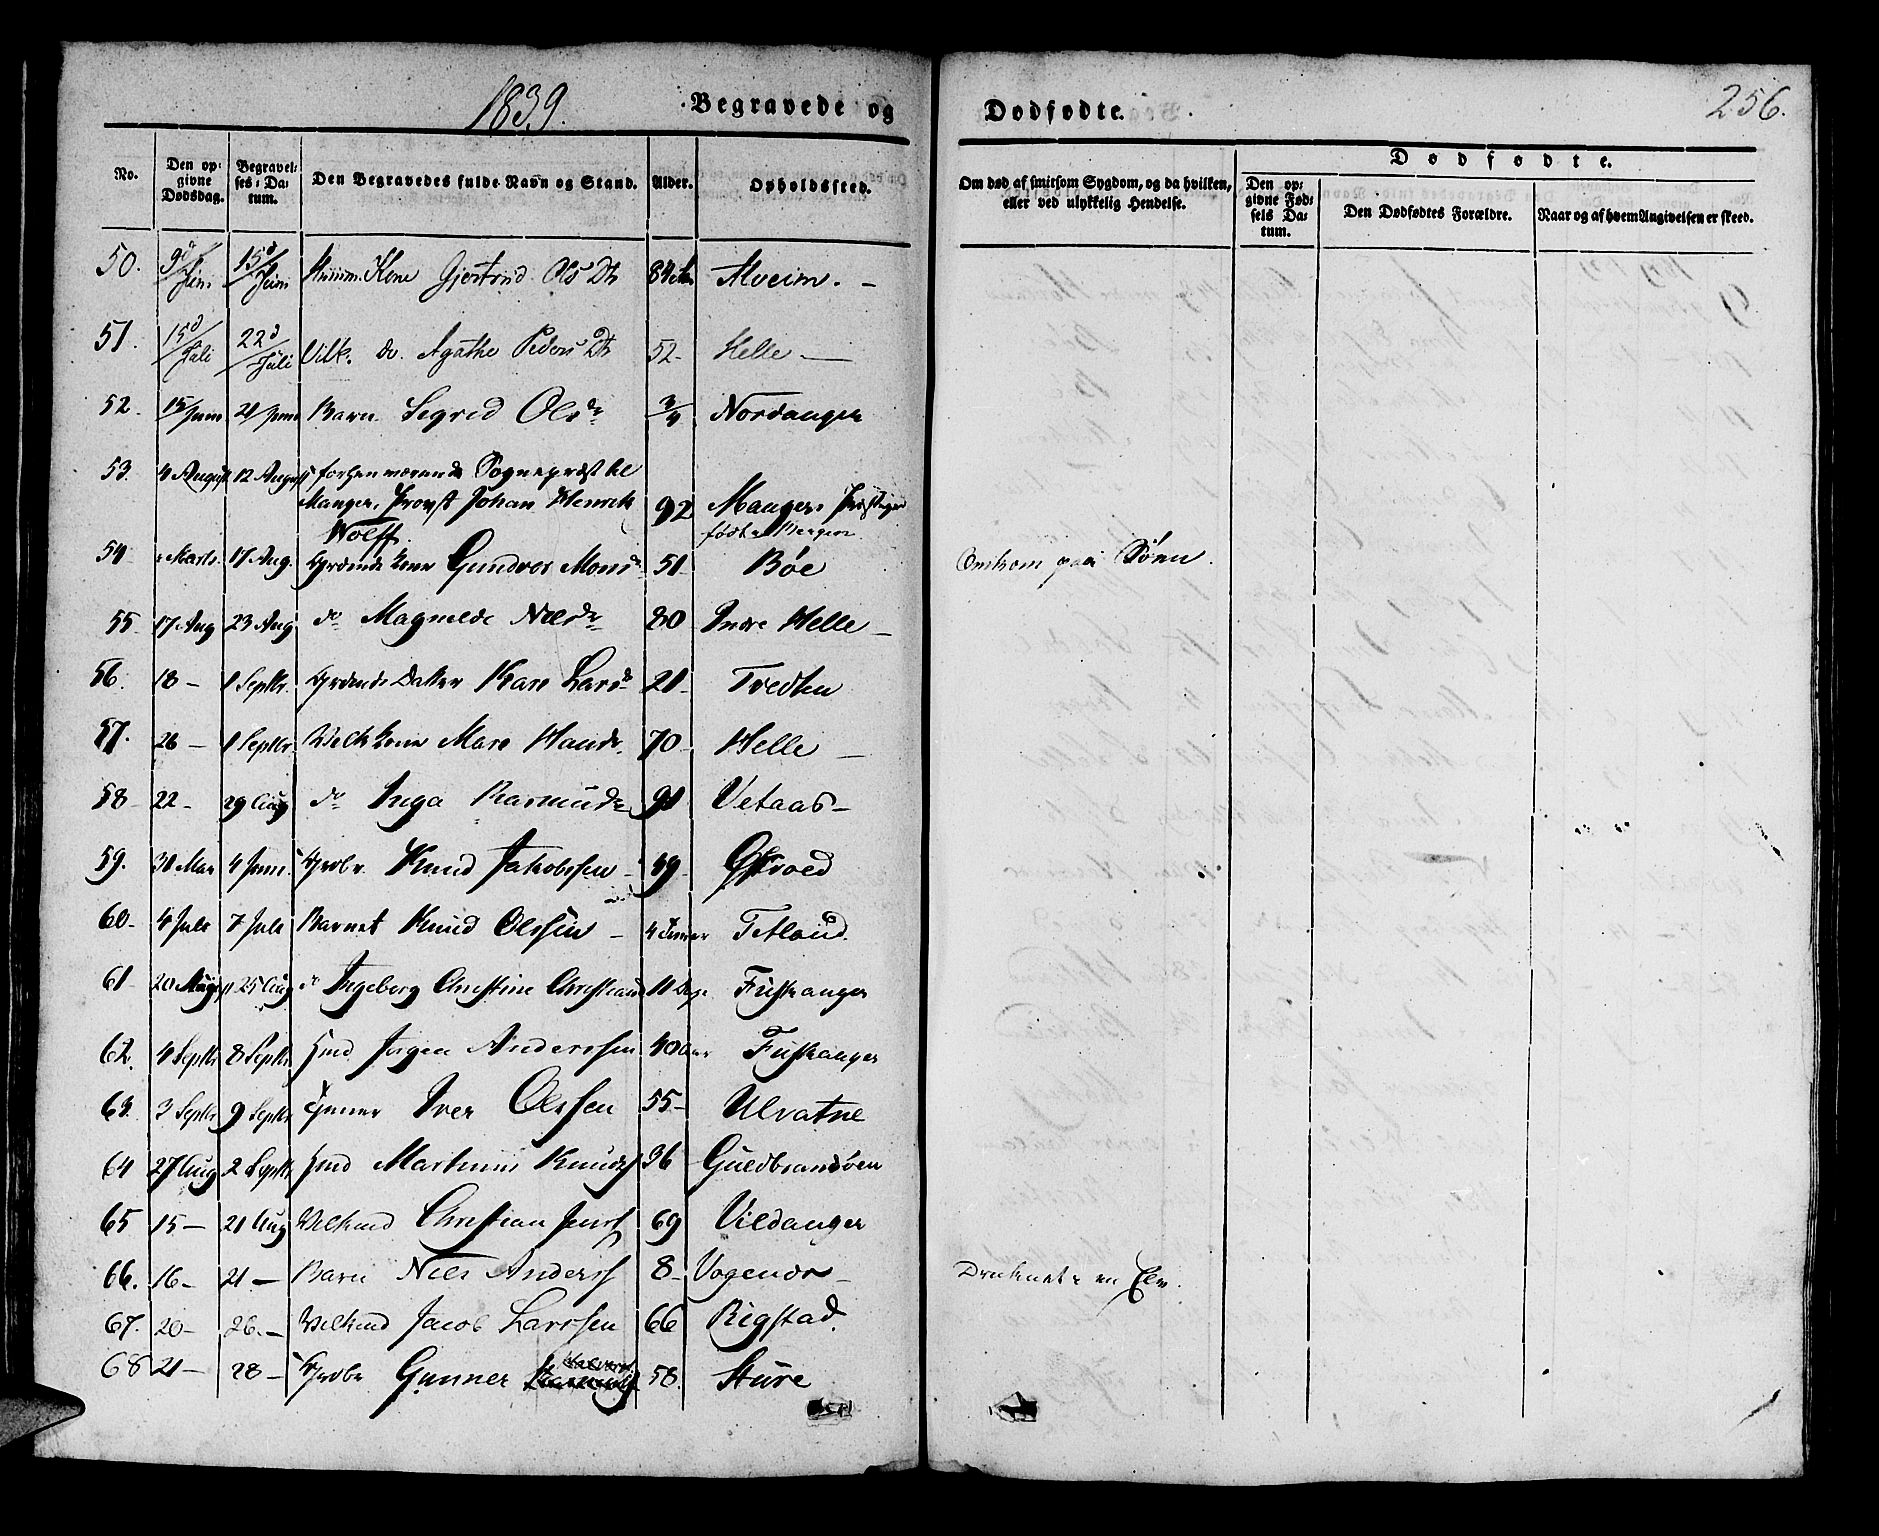 1839.
Begravede og
Dødfødte.
256.
No.
Den op-
givne
Dødsdag.
Begravel-
ses-Da-
tum.
Den Begravedes fulde Navn og Stand.
Alder.
Opholdssted.
Om død af smitsom Sygdom, og da hvilken,
eller ved ulykkelig Hendelse.
Dødfødte.
Den op-
givne Fød-
sels Da-
tum.
Den Dødfødtes Forældre.
Naar og af hvem Angivelsen er skeed.
50. 9d/Juni 15d/Juni Kone Gjertrud Ols Dtr 84 Alveim. -
51. 15d/Juli 22d/Juli Vilk. do. Agathe Peders Dtr 52- Helle -
52. 15/Juni 21/Juni Barn Sigrid Olsdr 3/4 Nordanger
53. 4 August 12 August forhenværende Sognepræst til
Manger, Provst Johan Henrik 92 Manger
Wolff. født i Bergen
54 Marts 17 Aug. Gundvor Monsdr 51 Bøe Omkom paa Søen.
55 17 Aug 23 Aug do Magnilde Nilsdr 80 Indre Helle -
56. 18 - 1 Septbr. Kari Larsd 21- Tvedten
57. 26 - 1 Septbr. Vilk kone Mari Hansdr. 70- Helle -
58 22- 29 Aug do Inga Rasmusdr 91 Vetaas -
59. 31 Mai 4 Juni. Knud Jakobssen - 49-
60- 4 Juli 7 Juli Barnet Knud Olssen - Tetland.
61 20 August 25 Aug do Ingeborg Christine 11 Dage Fuskanger
62. 4 Septbr 8 Septbr. Jørgen Anderssen 40 Aar Fuskanger
63. 3 Septbr 9 Septbr Iver Olssen 55- Ulvatne
64 27 Aug 2 Septbr Martinus Knuds 36 Guldbrandsøen
65 15- 21 Aug Christian Jens 69 Vildanger
66. 16- 21 - Barn Niels Anders 8- Druknet i en Elv.
67. 20- 26. - Jacob Larssen 66 Rigstad.
68 21- 28 - Gunner Halvors 58. Sture